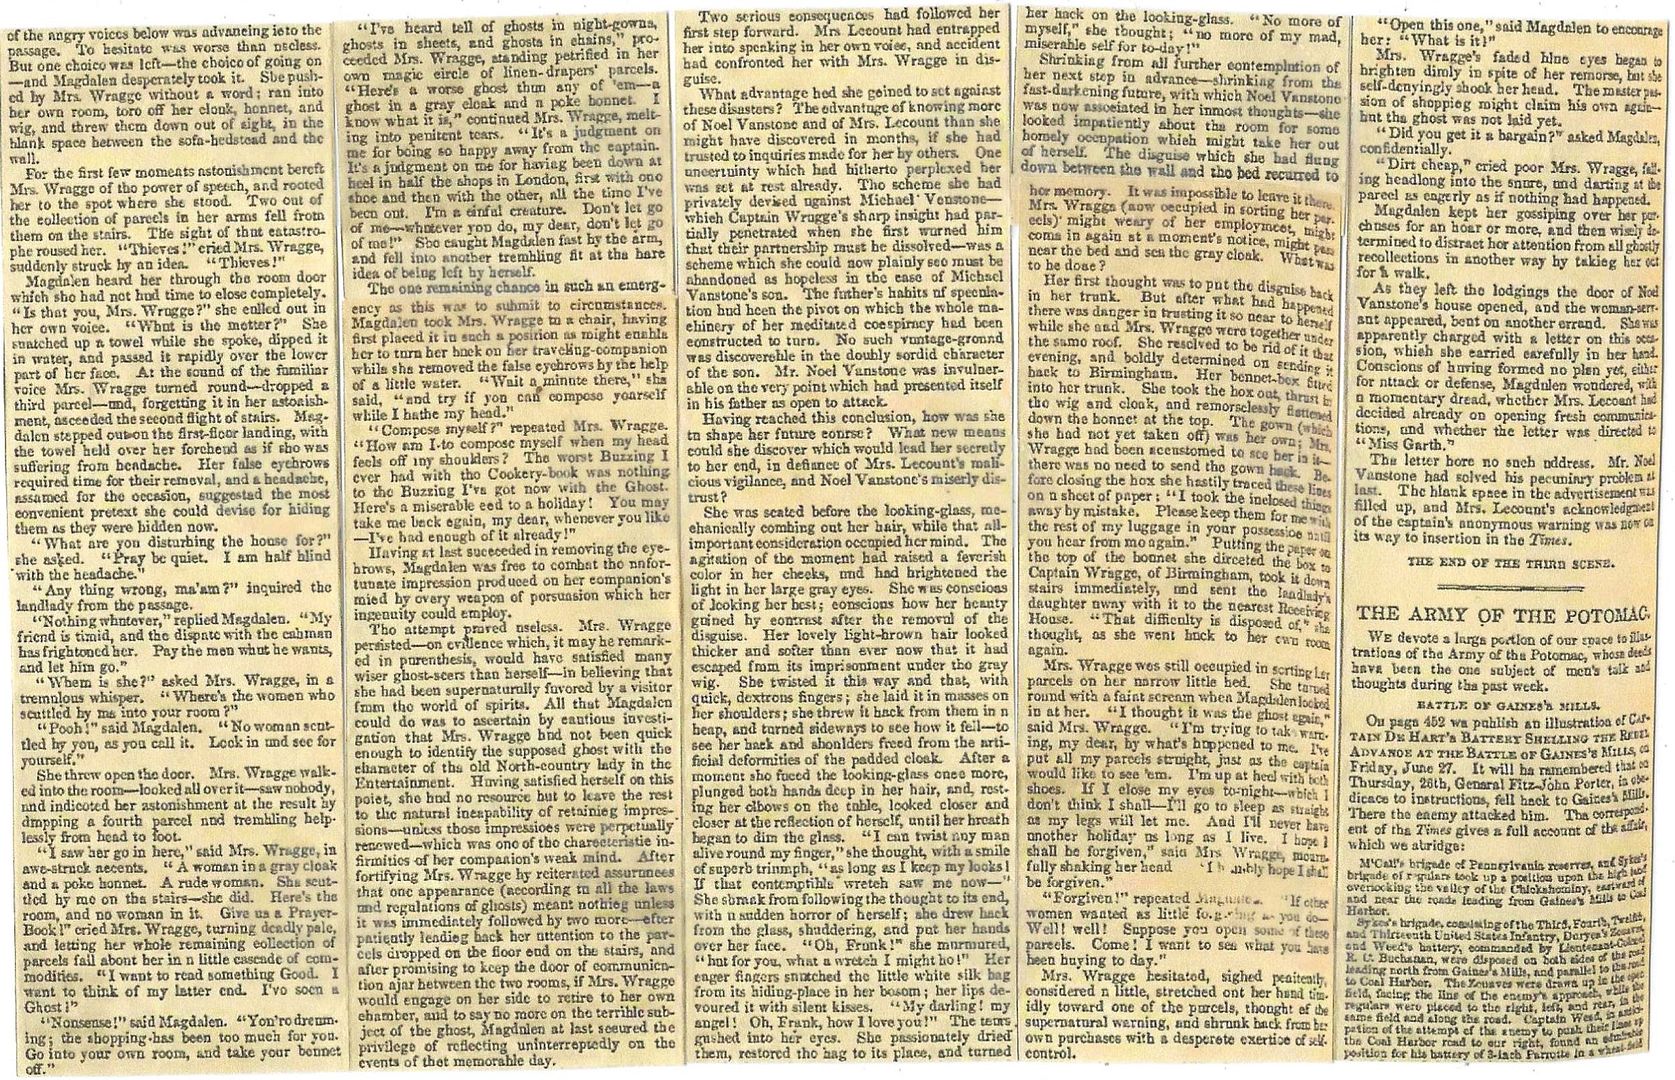 of the angry voices below was advancing into the
passage. To hesitate was worse than useless.
But one choice was left—the choice of going on
—and Magdalen desperately took it. She push-
ed by Mrs. Wragge without a word; ran into
her own room, tore off her cloak, bonnet, and
wig, and threw them down out of sight, in the
blank space between the sofa-bedstead and the
wall.
For the first few moments astonishment bereft
Mrs. Wragge of the power of speech, and rooted
her to the spot where she stood. Two out of
the collection of parcels in her arms fell from
them on the stairs. The sight of that catastro-
phe roused her. "Thieves!" cried Mrs. Wragge,
suddenly struck by an idea. "Thieves!"
Magdalen heard her through the room door
which she had not had time to close completely.
"Is that you, Mrs. Wragge?" she called out in
her own voice. "What is the matter?" She
snatched up a towel while she spoke, dipped it
in water, and passed it rapidly over the lower
part of her face. At the sound of the familiar
voice Mrs. Wragge turned round—dropped a
third parcel—and, forgetting it in her astonish-
ment, ascended the second flight of stairs. Mag-
dalen stepped out on the first-floor landing, with
the towel held over her forehead as if she was
suffering from headache. Her false eyebrows
required time for their removal, and a headache,
assumed for the occasion, suggested the most
convenient pretext she could devise for hiding
them as they were hidden now.
"What are you disturbing the house for?"
she asked. "Pray be quiet. I am half blind
with the headache."
"Any thing wrong, ma'am?" inquired the
landlady from the passage.
"Nothing whatever," replied Magdalen. "My
friend is timid, and the dispute with the cabman
has frightened her. Pay the man what he wants,
and let him go."
"Where is she?" asked Mrs. Wragge, in a
tremulous whisper. "Where's the women who
scuttled by me into your room?"
"Pooh!" said Magdalen. "No woman scut-
tled by you, as you call it. Look in and see for
yourself."
She threw open the door. Mrs. Wragge walk-
ed into the room—looked all over it—saw nobody,
and indicated her astonishment at the result by
dropping a fourth parcel and trembling help-
lessly from head to foot.
"I saw her go in here," said Mrs. Wragge, in
awe-struck accents. "A woman in a gray cloak
and a poke bonnet. A rude woman. She scut-
tled by me on the stairs—she did. Here's the
room, and no woman in it. Give us a Prayer-
Book!" cried Mrs. Wragge, turning deadly pale,
and letting her whole remaining collection of
parcels fall about her in a little cascade of com-
modities. "I want to read something Good. I
want to think of my latter end. I've seen a
Ghost!"
"Nonsense!" said Magdalen. "You're dream-
ing; the shopping has been too much for you.
Go into your own room, and take your bonnet
off."
"I've heard tell of ghosts in night-gowns,
ghosts in sheets, and ghosts in chains," pro-
ceeded Mrs. Wragge, standing petrified in her
own magic circle of linen-drapers' parcels.
"Here's a worse ghost than any of 'em—a
ghost in a gray cloak and a poke bonnet. I
know what it is," continued Mrs. Wragge, melt-
ing into penitent tears. "It's a judgment on
me for being so happy away from the captain.
It's a judgment on me for having been down at
heel in half the shops in London, first with one
shoe and then with the other, all the time I've
been out. I'm a sinful creature. Don't let go
of me—whatever you do, my dear, don't let go
of me!" She caught Magdalen fast by the arm,
and fell into another trembling fit at the bare
idea of being left by herself.
The one remaining chance in such an emerg-
ency as this was to submit to circumstances.
Magdalen took Mrs. Wragge to a chair, having
first placed it in such a position as might enable
her to turn her back on her traveling-companion
while she removed the false eyebrows by the help
of a little water. "Wait a minute there," she
said, "and try if you can compose yourself
while I bathe my head."
"Compose myself?" repeated Mrs. Wragge.
"How am I to compose myself when my head
feels off my shoulders? The worst Buzzing I
ever had with the Cookery-book was nothing
to the Buzzing I've got now with the Ghost.
Here's a miserable end to a holiday! You may
take me back again, my dear, whenever you like
—I've had enough of it already!"
Having at last succeeded in removing the eye-
brows, Magdalen was free to combat the unfor-
tunate impression produced on her companion's
mind by every weapon of persuasion which her
ingenuity could employ.
The attempt proved useless. Mrs. Wragge
persisted—on evidence which, it may be remark-
ed in parenthesis, would have satisfied many
wiser ghost-seers than herself—in believing that
she had been supernaturally favored by a visitor
from the world of spirits. All that Magdalen
could do was to ascertain by cautious investi-
gation that Mrs. Wragge had not been quick
enough to identify the supposed ghost with the
character of the old North-country lady in the
Entertainment. Having satisfied herself on this
point, she had no resource but to leave the rest
to the natural incapability of retaining impres-
sions—unless those impressions were perpetually
renewed—which was one of the characteristic in-
firmities of her companion's weak mind. After
fortifying Mrs. Wragge by reiterated assurances
that one appearance (according to all the laws
and regulations of ghosts) meant nothing unless
it was immediately followed by two more—after
patiently leading back her attention to the par-
cels dropped on the floor and on the stairs, and
after promising to keep the door of communica-
tion ajar between the two rooms, if Mrs. Wragge
would engage on her side to retire to her own
chamber, and to say no more on the terrible sub-
ject of the ghost, Magdalen at last secured the
privilege of reflecting uninterruptedly on the
events of that memorable day.
Two serious consequences had followed her
first step forward. Mrs. Lecount had entrapped
her into speaking in her own voice, and accident
had confronted her with Mrs. Wragge in dis-
guise.
What advantage had she gained to set against
these disasters? The advantage of knowing more
of Noel Vanstone and of Mrs. Lecount than she
might have discovered in months, if she had
trusted to inquiries made for her by others. One
uncertainty which had hitherto perplexed her
was set at rest already. The scheme she had
privately devised against Michael Vanstone—
which Captain Wragge's sharp insight had par-
tially penetrated when she first warned him
that their partnership must be dissolved—was a
scheme which she could now plainly see must be
abandoned as hopeless in the case of Michael
Vanstone's son. The father's habits of specula-
tion had been the pivot on which the whole ma-
chinery of her meditated conspiracy had been
constructed to turn. No such vantage-ground
was discoverable in the doubly sordid character
of the son. Mr. Noel Vanstone was invulner-
able on the very point which had presented itself
in his father as open to attack.
Having reached this conclusion, how was she
to shape her future course? What new means
could she discover which would lead her secretly
to her end, in defiance of Mrs. Lecount's mali-
cious vigilance, and Noel Vanstone's miserly dis-
trust?
She was seated before the looking-glass, me-
chanically combing out her hair, while that all-
important consideration occupied her mind. The
agitation of the moment had raised a feverish
color in her cheeks, and had brightened the
light in her large gray eyes. She was conscious
of looking her best; conscious how her beauty
gained by contrast after the removal of the
disguise. Her lovely light-brown hair looked
thicker and softer than ever now that it had
escaped from its imprisonment under the gray
wig. She twisted it this way and that, with
quick, dextrous fingers; she laid it in masses on
her shoulders; she threw it back from them in a
heap, and turned sideways to see how it fell—to
see her back and shoulders freed from the arti-
ficial deformities of the padded cloak. After a
moment she faced the looking-glass once more,
plunged both hands deep in her hair, and, rest-
ing her elbows on the table, looked closer and
closer at the reflection of herself, until her breath
began to dim the glass. "I can twist any man
alive round my finger," she thought, with a smile
of superb triumph, "as long as I keep my looks!
If that contemptible wretch saw me now—"
She shrank from following the thought to its end,
with a sudden horror of herself; she drew back
from the glass, shuddering, and put her hands
over her face. "Oh, Frank!" she murmured,
"but for you, what a wretch I might be!" Her
eager fingers snatched the little white silk bag
from its hiding-place in her bosom; her lips de-
voured it with silent kisses. "My darling! my
angel! Oh, Frank, how I love you!" The tears
gushed into her eyes. She passionately dried
them, restored the bag to its place, and turned
her back on the looking-glass. "No more of
myself," she thought; "no more of my mad,
miserable self for to-day!"
Shrinking from all further contemplation of
her next step in advance—shrinking from the
fast-darkening future, with which Noel Vanstone
was now associated in her inmost thoughts—she
looked impatiently about the room for some
homely occupation which might take her out
of herself. The disguise which she had flung
down between the wall and the bed recurred to
her memory. It was impossible to leave it there.
Mrs. Wragge (now occupied in sorting her par-
cels) might weary of her employment, might
come in again at a moment's notice, might pass
near the bed and see the gray cloak. What was
to be done?
Her first thought was to put the disguise back
in her trunk. But after what had happened
there was danger in trusting it so near to herself
while she and Mrs. Wragge were together under
the same roof. She resolved to be rid of it that
evening, and boldly determined on sending it
back to Birmingham. Her bonnet-box fitted
into her trunk. She took the box out, thrust in
the wig and cloak, and remorselessly flattened
down the bonnet at the top. The gown (which
she had not yet taken off) was her own; Mrs.
Wragge had been accustomed to see her in it—
there was no need to send the gown back. Be-
fore closing the box she hastily traced these lines
on a sheet of paper: "I took the inclosed things
away by mistake. Please keep them for me with
the rest of my luggage in your possession until
you hear from me again." Putting the paper on
the top of the bonnet she directed the box to
Captain Wragge, of Birmingham, took it down
stairs immediately, and sent the landlady's
daughter away with it to the nearest Receiving
House. "That difficulty is disposed of," she
thought, as she went back to her own room
again.
Mrs. Wragge was still occupied in sorting her
parcels on her narrow little bed. She turned
round with a faint scream when Magdalen looked
in at her. "I thought it was the ghost again,"
said Mrs. Wragge. "I'm trying to take warn-
ing, my dear, by what's happened to me. I've
put all my parcels straight, just as the captain
would like to see 'em. I'm up at heel with both
shoes. If I close my eyes to-night—which I
don't think I shall—I'll go to sleep as straight
as my legs will let me. And I'll never have
another holiday as long as I live. I hope I
shall be forgiven," said Mrs. Wragge, mourn-
fully shaking her head. I humbly hope I shall
be forgiven."
"Forgiven!" repeated Magdalen. "If other
women wanted as little forgiving as you do—
Well! well! Suppose you open some of these
parcels. Come! I want to see what you have
been buying to-day."
Mrs. Wragge hesitated, sighed penitently,
considered a little, stretched out her hand tim-
idly toward one of the parcels, thought of the
supernatural warning, and shrunk back from her
own purchases with a desperate exertion of self-
control.
"Open this one," said Magdalen to encourage
her: "What is it?"
Mrs. Wragge's faded blue eyes began to
brighten dimly in spite of her remorse, but she
self-denyingly shook her head. The master pas-
sion of shopping might claim his own again—
but the ghost was not laid yet.
"Did you get it a bargain?" asked Magdalen,
confidentially.
"Dirt cheap," cried poor Mrs. Wragge, fall-
ing headlong into the snare, and darting at the
parcel as eagerly as if nothing had happened.
Magdalen kept her gossiping over her pur-
chases for an hour or more, and then wisely de-
termined to distract her attention from all ghostly
recollections in another way by taking her out
for a walk.
As they left the lodgings the door of Noel
Vanstone's house opened, and the woman-serv-
ant appeared, bent on another errand. She was
apparently charged with a letter on this occa-
sion, which she carried carefully in her hand.
Conscious of having formed no plan yet, either
for attack or defense, Magdalen wondered, with
a momentary dread, whether Mrs. Lecount had
decided already on opening fresh communica-
tions, and whether the letter was directed to
"Miss Garth."
The letter bore no such address. Mr. Noel
Vanstone had solved his pecuniary problem at
last. The blank space in the advertisement was
filled up, and Mrs. Lecount's acknowledgment
of the captain's anonymous warning was now on
its way to insertion in the Times.
THE END OF THE THIRD SCENE.
THE ARMY OF THE POTOMAC.
WE devote a large portion of our space to illus-
trations of the Army of the Potomac, whose deeds
have been the one subject of men's talk and
thoughts during the past week.
BATTLE OF GAINES'S MILLS.
On page 452 we publish an illustration of CAP-
TAIN DE HART'S BATTERY SHELLING THE REBEL
ADVANCE AT THE BATTLE OF GAINES'S MILLS, on
Friday, June 27. It will be remembered that on
Thursday, 26th, General Fitz-John Porter, in obe-
dience to instructions, fell back to Gaines's Mills.
There the enemy attacked him. The correspond-
ent of the Times gives a full account of the affair,
which we abridge:
M'Call's brigade of Pennsylvania reserves, and Sykes's
brigade of regulars took up a position upon the high land
overlooking the valley of the Chickahominy, eastward of
and near the roads leading from Gaines's Mills to Coal
Harbor.
Sykes's brigade, consisting of the Third, Fourth, Twelfth,
and Thirteenth United States Infantry, Duryea's Zouaves,
and Weed's battery, commanded by Lieutenant-Colonel
R. C. Buchanan, were disposed on both sides of the road
leading north from Gaines's Mills, and parallel to the road
to Coal Harbor. The Zouaves were drawn up in the open
field, facing the line of the enemy's approach, while the
regulars were placed to the right, left, and rear, in the
same field and along the road. Captain Weed, in antici-
pation of the attempt of the enemy to push their lines up
the Coal Harbor road to our right, found an admirable
position for his battery of 3-inch Parrotts in a wheat-field